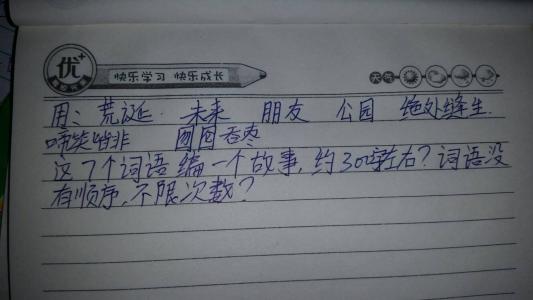 优+
快乐学习 快乐成长
天气
用：荒诞 未来 朋友 公园 绝处缝生
啼笑皆非 囫囵吞枣
这7个词语编一个故事，约300字左右？词语没
有顺序，不限次数？